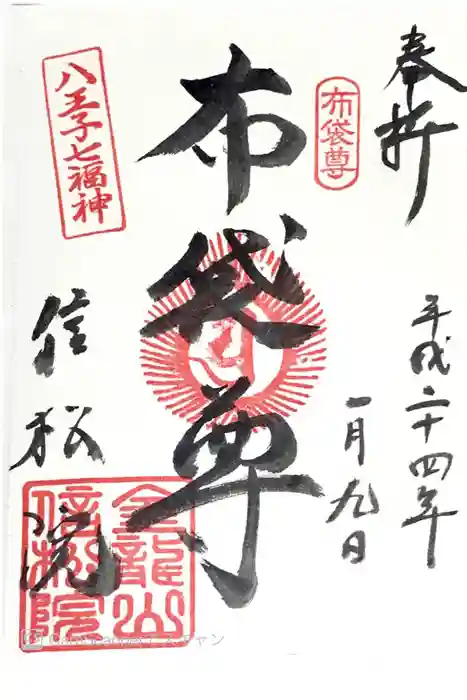 奉拝
平成二十四年
一月九日
布袋尊
布袋尊
八王子七福神
信松院
金龍山
信松院